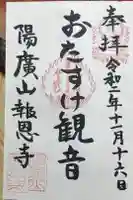 奉拝 令和二年十一月十六日
おたすけ観音
陽廣山 報恩寺